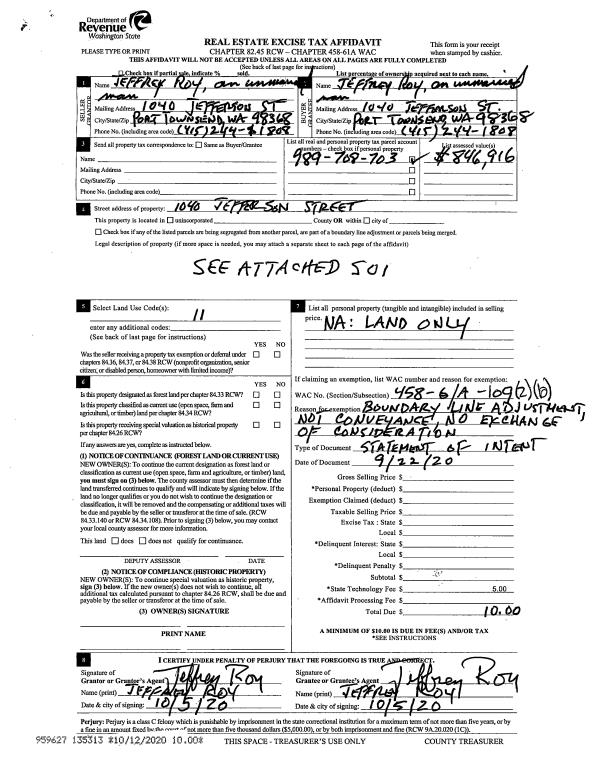 Department of
Revenue
Washington State
PLEASE TYPE OR PRINT
REAL ESTATE EXCISE TAX AFFIDAVIT
CHAPTER 82.45 RCW – CHAPTER 458-61A WAC
This form is your receipt
when stamped by cashier.
THIS AFFIDAVIT WILL NOT BE ACCEPTED UNLESS ALL AREAS ON ALL PAGES ARE FULLY COMPLETED
(See back of last page for instructions)
Check box if partial sale, indicate % sold.
List percentage of ownership acquired next to each name.
1 Name JEFFREY ROY, an unmarried
man
SELLER GRANTOR
Mailing Address 1040 JEFFERSON ST
City/State/Zip PORT TOWNSEND, WA 98368
Phone No. (including area code) (415) 244-1808
Name JEFFREY ROY, an unmarried
man
BUYER GRANTEE
Mailing Address 1040 JEFFERSON ST.
City/State/Zip PORT TOWNSEND, WA 98368
Phone No. (including area code) (415) 244-1808
3 Send all property tax correspondence to: Same as Buyer/Grantee
Name
Mailing Address
City/State/Zip
Phone No. (including area code)
List all real and personal property tax parcel account
numbers – check box if personal property
989-708-703
List assessed value(s)
$846,916
4 Street address of property: 1040 JEFFERSON STREET
This property is located in unincorporated County OR within city of
Check box if any of the listed parcels are being segregated from another parcel, are part of a boundary line adjustment or parcels being merged.
Legal description of property (if more space is needed, you may attach a separate sheet to each page of the affidavit)
SEE ATTACHED SOI
5 Select Land Use Code(s):
11
enter any additional codes:
(See back of last page for instructions)
YES NO
Was the seller receiving a property tax exemption or deferral under
chapters 84.36, 84.37, or 84.38 RCW (nonprofit organization, senior
citizen, or disabled person, homeowner with limited income)?
6
YES NO
Is this property designated as forest land per chapter 84.33 RCW?
Is this property classified as current use (open space, farm and
agricultural, or timber) land per chapter 84.34 RCW?
Is this property receiving special valuation as historical property
per chapter 84.26 RCW?
If any answers are yes, complete as instructed below.
(1) NOTICE OF CONTINUANCE (FOREST LAND OR CURRENT USE)
NEW OWNER(S): To continue the current designation as forest land or
classification as current use (open space, farm and agriculture, or timber) land,
you must sign on (3) below. The county assessor must then determine if the
land transferred continues to qualify and will indicate by signing below. If the
land no longer qualifies or you do not wish to continue the designation or
classification, it will be removed and the compensating or additional taxes will
be due and payable by the seller or transferor at the time of sale. (RCW
84.33.140 or RCW 84.34.108). Prior to signing (3) below, you may contact
your local county assessor for more information.
This land does does not qualify for continuance.
DEPUTY ASSESSOR DATE
(2) NOTICE OF COMPLIANCE (HISTORIC PROPERTY)
NEW OWNER(S): To continue special valuation as historic property,
sign (3) below. If the new owner(s) does not wish to continue, all
additional tax calculated pursuant to chapter 84.26 RCW, shall be due and
payable by the seller or transferor at the time of sale.
(3) OWNER(S) SIGNATURE
PRINT NAME
7 List all personal property (tangible and intangible) included in selling
price. NA: LAND ONLY
If claiming an exemption, list WAC number and reason for exemption:
WAC No. (Section/Subsection) 458-61A-109(2)(b)
Reason for exemption BOUNDARY LINE ADJUSTMENT,
NOT CONVEYANCE, NO EXCHANGE
OF CONSIDERATION
Type of Document STATEMENT OF INTENT
Date of Document 9/22/20
Gross Selling Price $
*Personal Property (deduct) $
Exemption Claimed (deduct) $
Taxable Selling Price $
Excise Tax : State $
Local $
*Delinquent Interest: State $
Local $
*Delinquent Penalty $
Subtotal $
*State Technology Fee $ 5.00
*Affidavit Processing Fee $
Total Due $ 10.00
A MINIMUM OF $10.00 IS DUE IN FEE(S) AND/OR TAX
*SEE INSTRUCTIONS
8 I CERTIFY UNDER PENALTY OF PERJURY THAT THE FOREGOING IS TRUE AND CORRECT.
Signature of
Grantor or Grantor's Agent Jeffrey Roy
Name (print) JEFFREY ROY
Date & city of signing: 10/5/20
Signature of
Grantee or Grantee's Agent Jeffrey Roy
Name (print) JEFFREY ROY
Date & city of signing: 10/5/20
Perjury: Perjury is a class C felony which is punishable by imprisonment in the state correctional institution for a maximum term of not more than five years, or by
a fine in an amount fixed by the court of not more than five thousand dollars ($5,000.00), or by both imprisonment and fine (RCW 9A.20.020 (1C)).
959627 135313 *10/12/2020 10.00*
THIS SPACE - TREASURER'S USE ONLY
COUNTY TREASURER